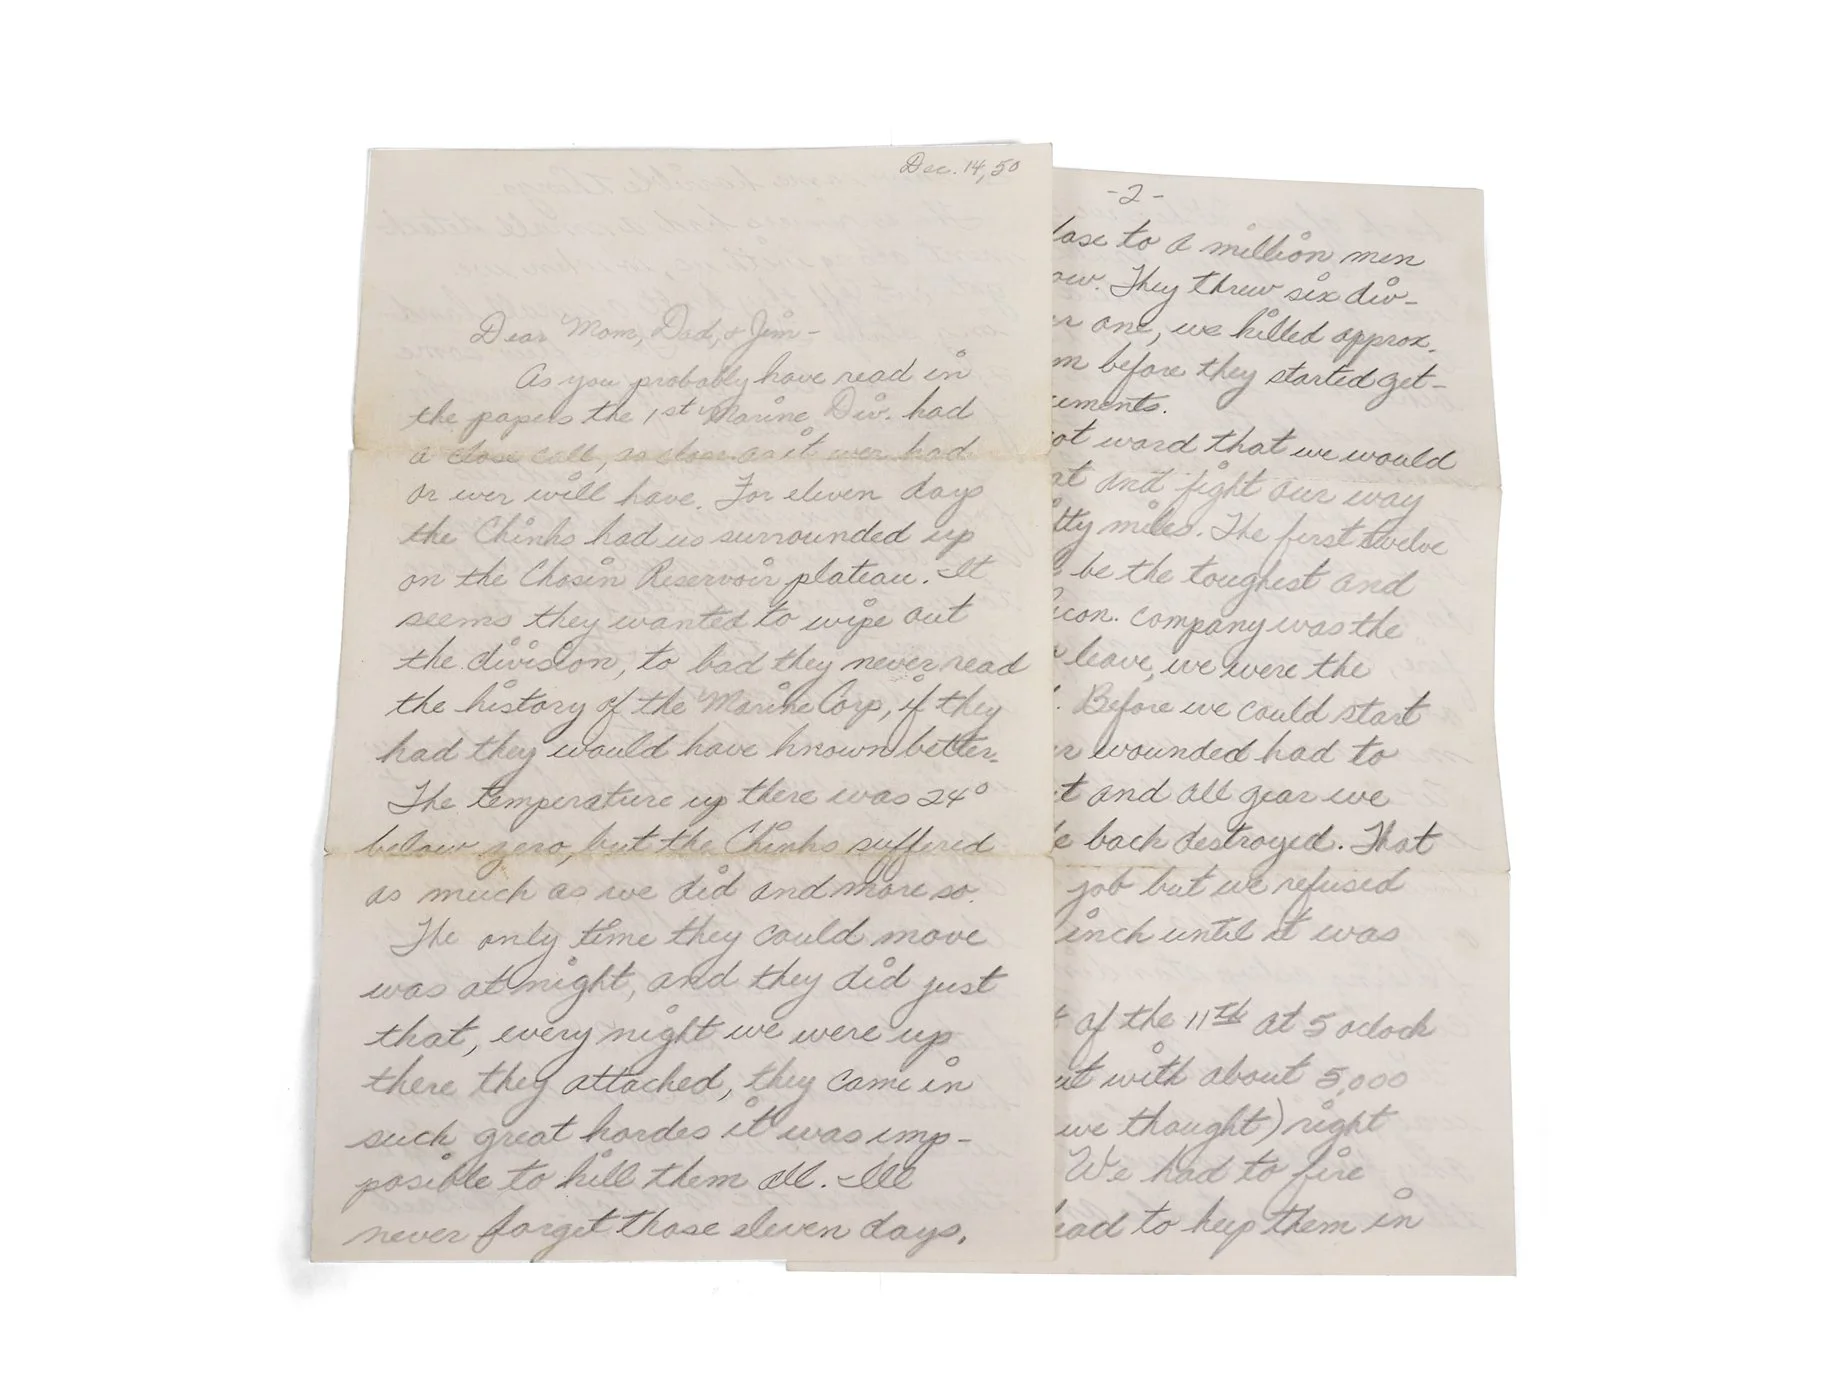 Dec. 14, 50
Dear Mom, Dad, & Jim -
As you probably have read in
the papers the 1st Marine Div. had
a close call, as close as it ever had
or ever will have. For eleven days
the Chinks had us surrounded up
on the Chosin Reservoir plateau. It
seems they wanted to wipe out
the division, to bad they never read
the history of the Marine Corp, if they
had they would have known better.
The temperature up there was 24°
below zero, but the Chinks suffered
as much as we did and more so.
The only time they could move
was at night, and they did just
that, every night we were up
there they attacked, they came in
such great hordes it was imp-
posible to kill them all. Ill
never forget those eleven days.
-2-
lose to a million men
ow. They threw six div-
r one, we killed approx.
m before they started get-
cements.
ot word that we would
at and fight our way
fty miles. The first twelve
be the toughest and
Recon. Company was the
leave, we were the
. Before we could start
r wounded had to
t and all gear we
e back destroyed. That
job but we refused
inch until it was
of the 11th at 5 oclock
ut with about 5,000
we thought) right
We had to fire
ead to keep them in